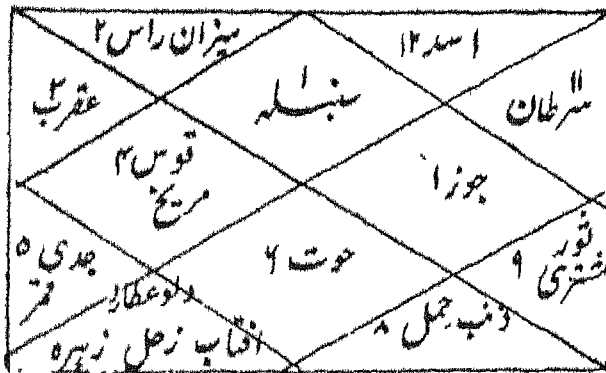 میزان راس ۲
اسد ۱۲
سنبلہ ۱
عقرب ۳
سرطان ۱۱
قوس ۴
مریخ
جوزا ۱۰
جدی ۵
قمر
حوت ۶
ثور ۹
مشتری
دلو عطارد
افتاب زحل زہرہ
ذنب حمل ۸